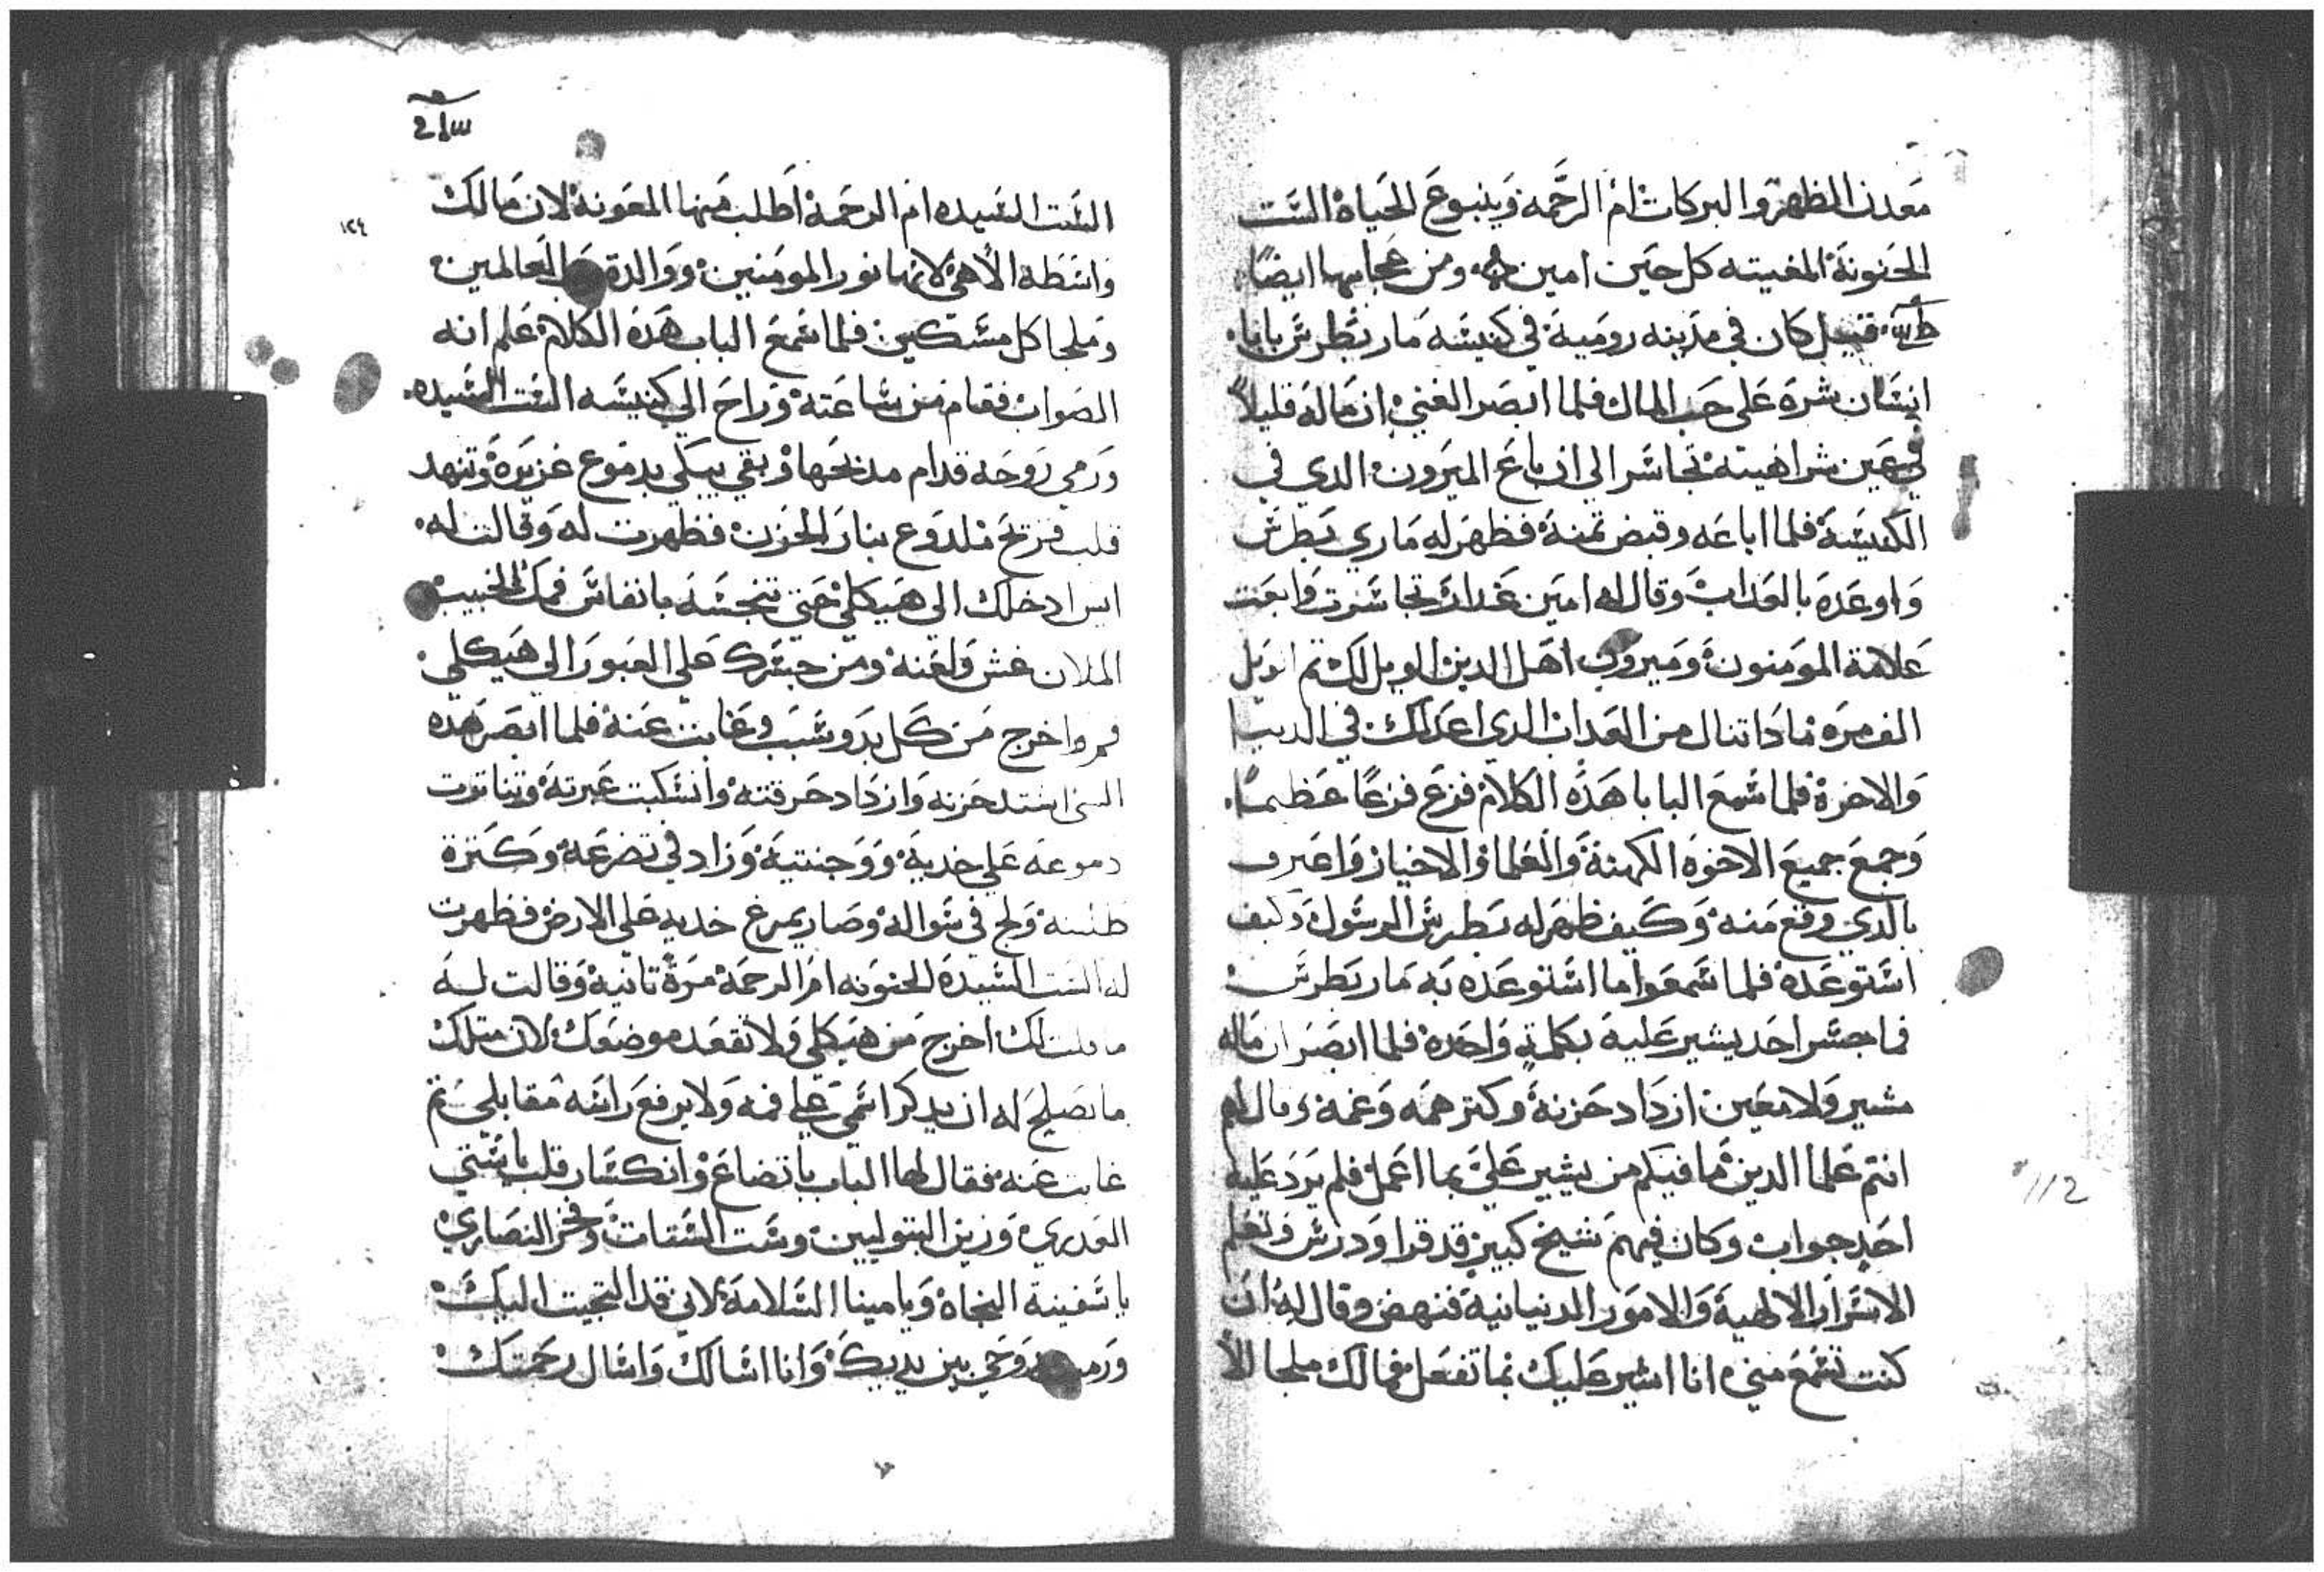 معدن الطهر والبركات ام الرحمه وينبوع الحياه الست
الحنونة المغيته كل حين امين ومن عجايبها ايضًا
قيل كان في مدينه روميه في كنيسه مار بطرس بابا
انسان شره على حب المال فلما ابصر الغني ان ماله قليلاً
في عين شراهيته تجاسر الي ان باع الميرون الدي في
الكنيسة فلما اباعه وقبض تمنه فظهر له ماري بطرس
واوعده بالعداب وقال له امين غداك تجاسرت وابعت
علامة المومنون وميرون اهل الدين الويل لك تم الويل
الف مره مادا تنال من العداب الدي اعد لك في الدنيا
والاخرة فلما سمع البابا هده الكلام فزع فزعًا عظيمًا
وجمع جميع الاخوه الكهنة والعلما والاخيار واعترف
بالدي وقع منه وكيف ظهر له بطرس الرسول وكيف
استوعده فلما سمعوا ما استوعده به مار بطرس
فما جسر احد يشير عليه بكلمةٍ واحده فلما ابصر ان ماله
مشير ولا معين ازداد حزنه وكتر همه وغمه وقال لهم
انتم علما الدين ما فيكم من يشير عليَّ بما اعمل فلم يرد عليه
احد جواب وكان فيهم شيخ كبير قد قرا ودرس وتعلم
الاسرار الالهية والامور الدنيانية فنهض وقال له ان
كنت تسمع مني انا اشير عليك بما تفعل فمالك ملجا الا
١٢٤
الست السيده ام الرحمة اطلب منها المعونة لان مالك
واسطة الا هي لانها نور المومنين ووالدة العالمين
وملجا كل مسكين فلما سمع الباب هده الكلام علم انه
الصواب فقام من ساعته وراح الي كنيسه الست السيده
ورمي روحه قدام مدبحها وبقي يبكي بدموع غزيرة وتنهد
قلب قريح ملدوع بنار الحزن فظهرت له وقالت له
ايس ادخلك الي هيكلي حتي تنجسه بانفاس فمك الخبيت
الملان غش ولعنه ومن جسرك علي العبور الي هيكلي
قم واخرج من كل بد وسبب وغابت عنه فلما ابصر هده
اشتد حزنه وازداد حرقته وانسكبت عبرته وتناترت
دموعه علي خديه ووجنتيه وزاد في تضرعه وكترة
طلبته ولج في سواله وصار يمرغ خديه علي الارض فظهرت
له الست السيده الحنونه ام الرحمة مرةً تانية وقالت له
ما قلت لك اخرج من هيكلي ولا تقعد موضعك لان متلك
ما يصلح له ان يدكر اسمي علي فمه ولا يرفع راسه مقابلي تم
غابت عنه فقال لها الباب باتضاع وانكسار قلب يا ستي
العدري وزين البتوليين وست الستات وفخر النصاري
يا سفينة النجاة ويا مينا السلامة لاني قد التجيت اليك
ورميت روحي بين يديك وانا اسالك واسال رحمتك
112